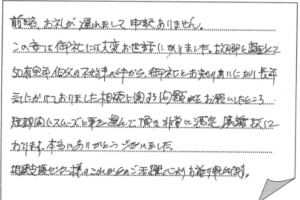 前略、お礼が遅れまして申訳ありません。
この度は御社には大変お世話になりました。故郷を離れて
50有余年
御社とお知り合いになり長年
気にかけておりました相続に関する問題をお願いしたところ
短期間にスムーズに事を運んで頂き非常に満足、感謝致して
おります。本当にありがとうございました。
相続支援センター様のこれからのご活躍を心よりお祈り申し上げます。